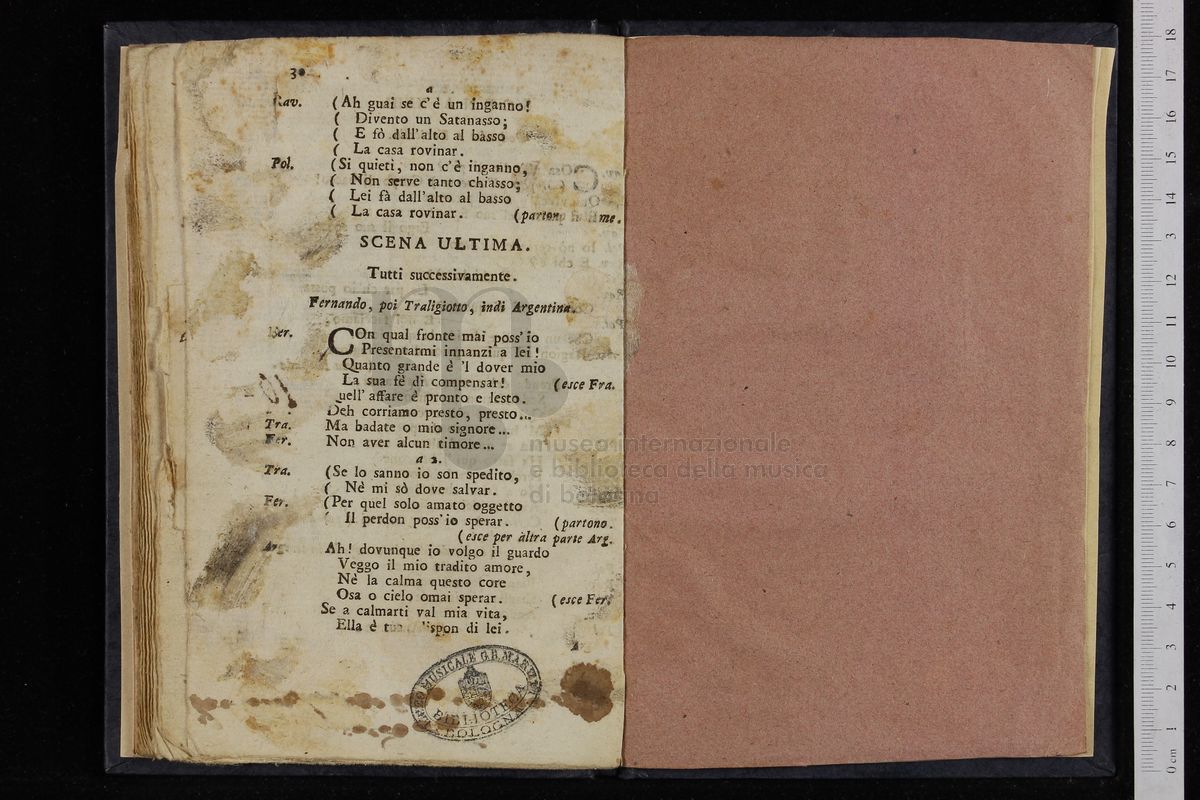 30
a
Rav. (Ah guai se c'è un inganno!
( Divento un Satanasso;
( E fò dall'alto al basso
( La casa rovinar.
Pol. (Si quieti, non c'è inganno,
( Non serve tanto chiasso;
( Lei fà dall'alto al basso
( La casa rovinar. (partono
SCENA ULTIMA.
Tutti successivamente.
Fernando, poi Traligiotto, indi Argentina.
Fer. COn qual fronte mai poss'io
Presentarmi innanzi a lei!
Quanto grande è 'l dover mio
La sua fè di compensar! (esce Fra.
uell' affare è pronto e lesto.
Deh corriamo presto, presto...
Tra. Ma badate o mio signore...
Fer. Non aver alcun timore...
a 2.
Tra. (Se lo sanno io son spedito,
( Nè mi sò dove salvar.
Fer. (Per quel solo amato oggetto
Il perdon poss'io sperar. (partono.
(esce per altra parte Arg.
Ar. Ah! dovunque io volgo il guardo
Veggo il mio tradito amore,
Nè la calma questo core
Osa o cielo omai sperar. (esce Fer.
Se a calmarti val mia vita,
Ella è dispon di lei.
MUSICALE G.B. MARTINI
BIBLIOTECA
BOLOGNA
museo internazionale
e biblioteca della musica
di bologna
0 cm 1 2 3 4 5 6 7 8 9 10 11 12 13 14 15 16 17 18